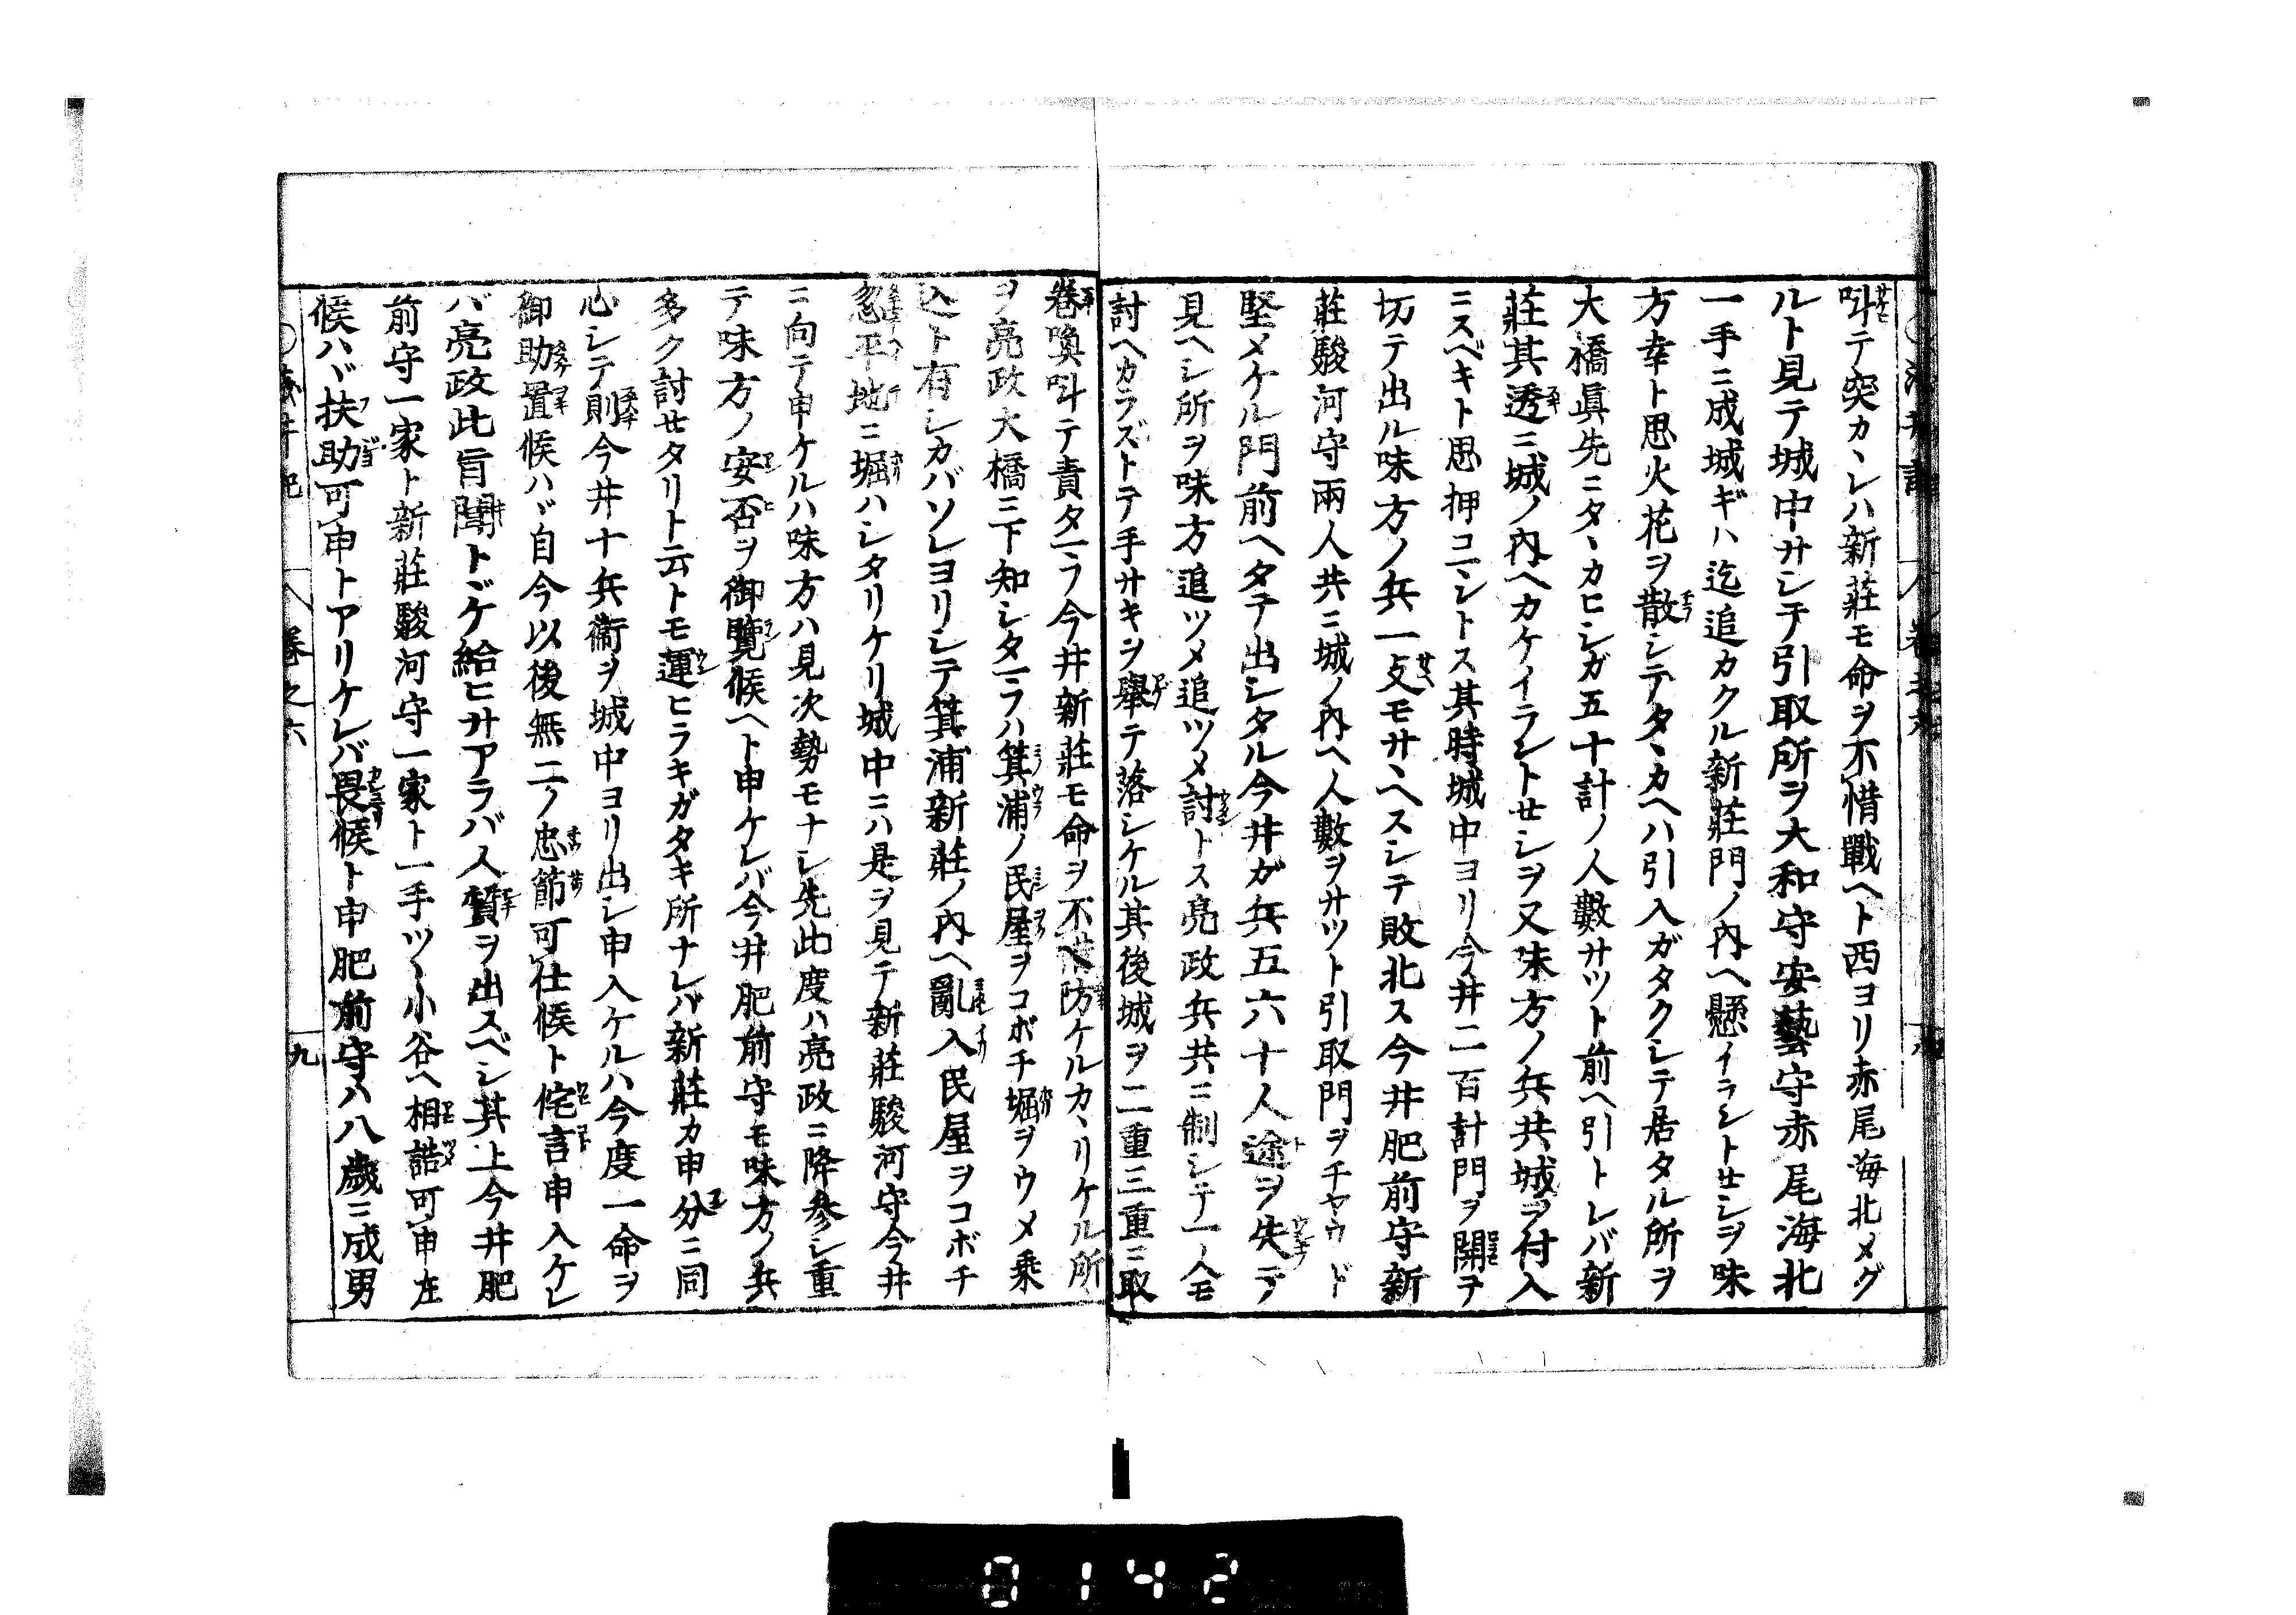 呌テ突カヽレハ新莊モ命ヲ不惜戰ヘト西ヨリ赤尾海北メグ
ルト見テ城中サシテ引取所ヲ大和守安藝守赤尾海北
一手ニ成城ギハ迄追カクル新莊門ノ內ヘ懸イラントセシヲ味
方幸ト思火花ヲ散シテタヽカヘハ引入ガタクシテ居タル所ヲ
大橋眞先ニタヽカヒシガ五十計ノ人數サツト前ヘ引トレバ新
莊其透ニ城ノ內ヘカケイラントセシヲ又味方ノ兵共城ヲ付入
ニスベキト思押コマントス其時城中ヨリ今井二百計門ヲ開テ
切テ出ル味方ノ兵一支モサヽヘスシテ敗北ス今井肥前守新
莊駿河守兩人共ニ城ノ內ヘ人數ヲサツト引取門ヲチヤウド
堅メケル門前ヘタテ出シタル今井ガ兵五六十人途ヲ失テ
見ヘシ所ヲ味方追ツメ追ツメ討トス亮政兵共ニ制シテ一人モ
討ヘカラズトテ手サキヲ擧テ落シケル其後城ヲ二重三重ニ取
卷喚呌テ責タマフ今井新莊モ命ヲ不惜防ケルカヽリケル所
ヲ亮政大橋ニ下知シタマフハ箕浦ノ民屋ヲコボチ堀ヲウメ乗
込ト有シカバソレヨリシテ箕浦新莊ノ內ヘ亂入民屋ヲコボチ
忽平地ニ堀ハシタリケリ城中ニハ是ヲ見テ新莊駿河守今井
ニ向テ申ケルハ味方ハ見次勢モナシ先此度ハ亮政ニ降參シ重
テ味方ノ安否ヲ御覽候ヘト申ケレバ今井肥前守モ味方ノ兵
多ク討セタリト云トモ運ヒラキガタキ所ナレバ新莊カ申分ニ同
心シテ則今井十兵衞ヲ城中ヨリ出シ申入ケルハ今度一命ヲ
御助置候ハヾ自今以後無二ノ忠節可仕候ト侘言申入ケレ
バ亮政此旨聞トヾケ給ヒサアラバ人質ヲ出スベシ其上今井肥
前守一家ト新莊駿河守一家ト一手ツヽ小谷ヘ相詰可申左
候ハヾ扶助可申トアリケレバ畏候ト申肥前守ハ八歲ニ成男
卷之六
九
0142